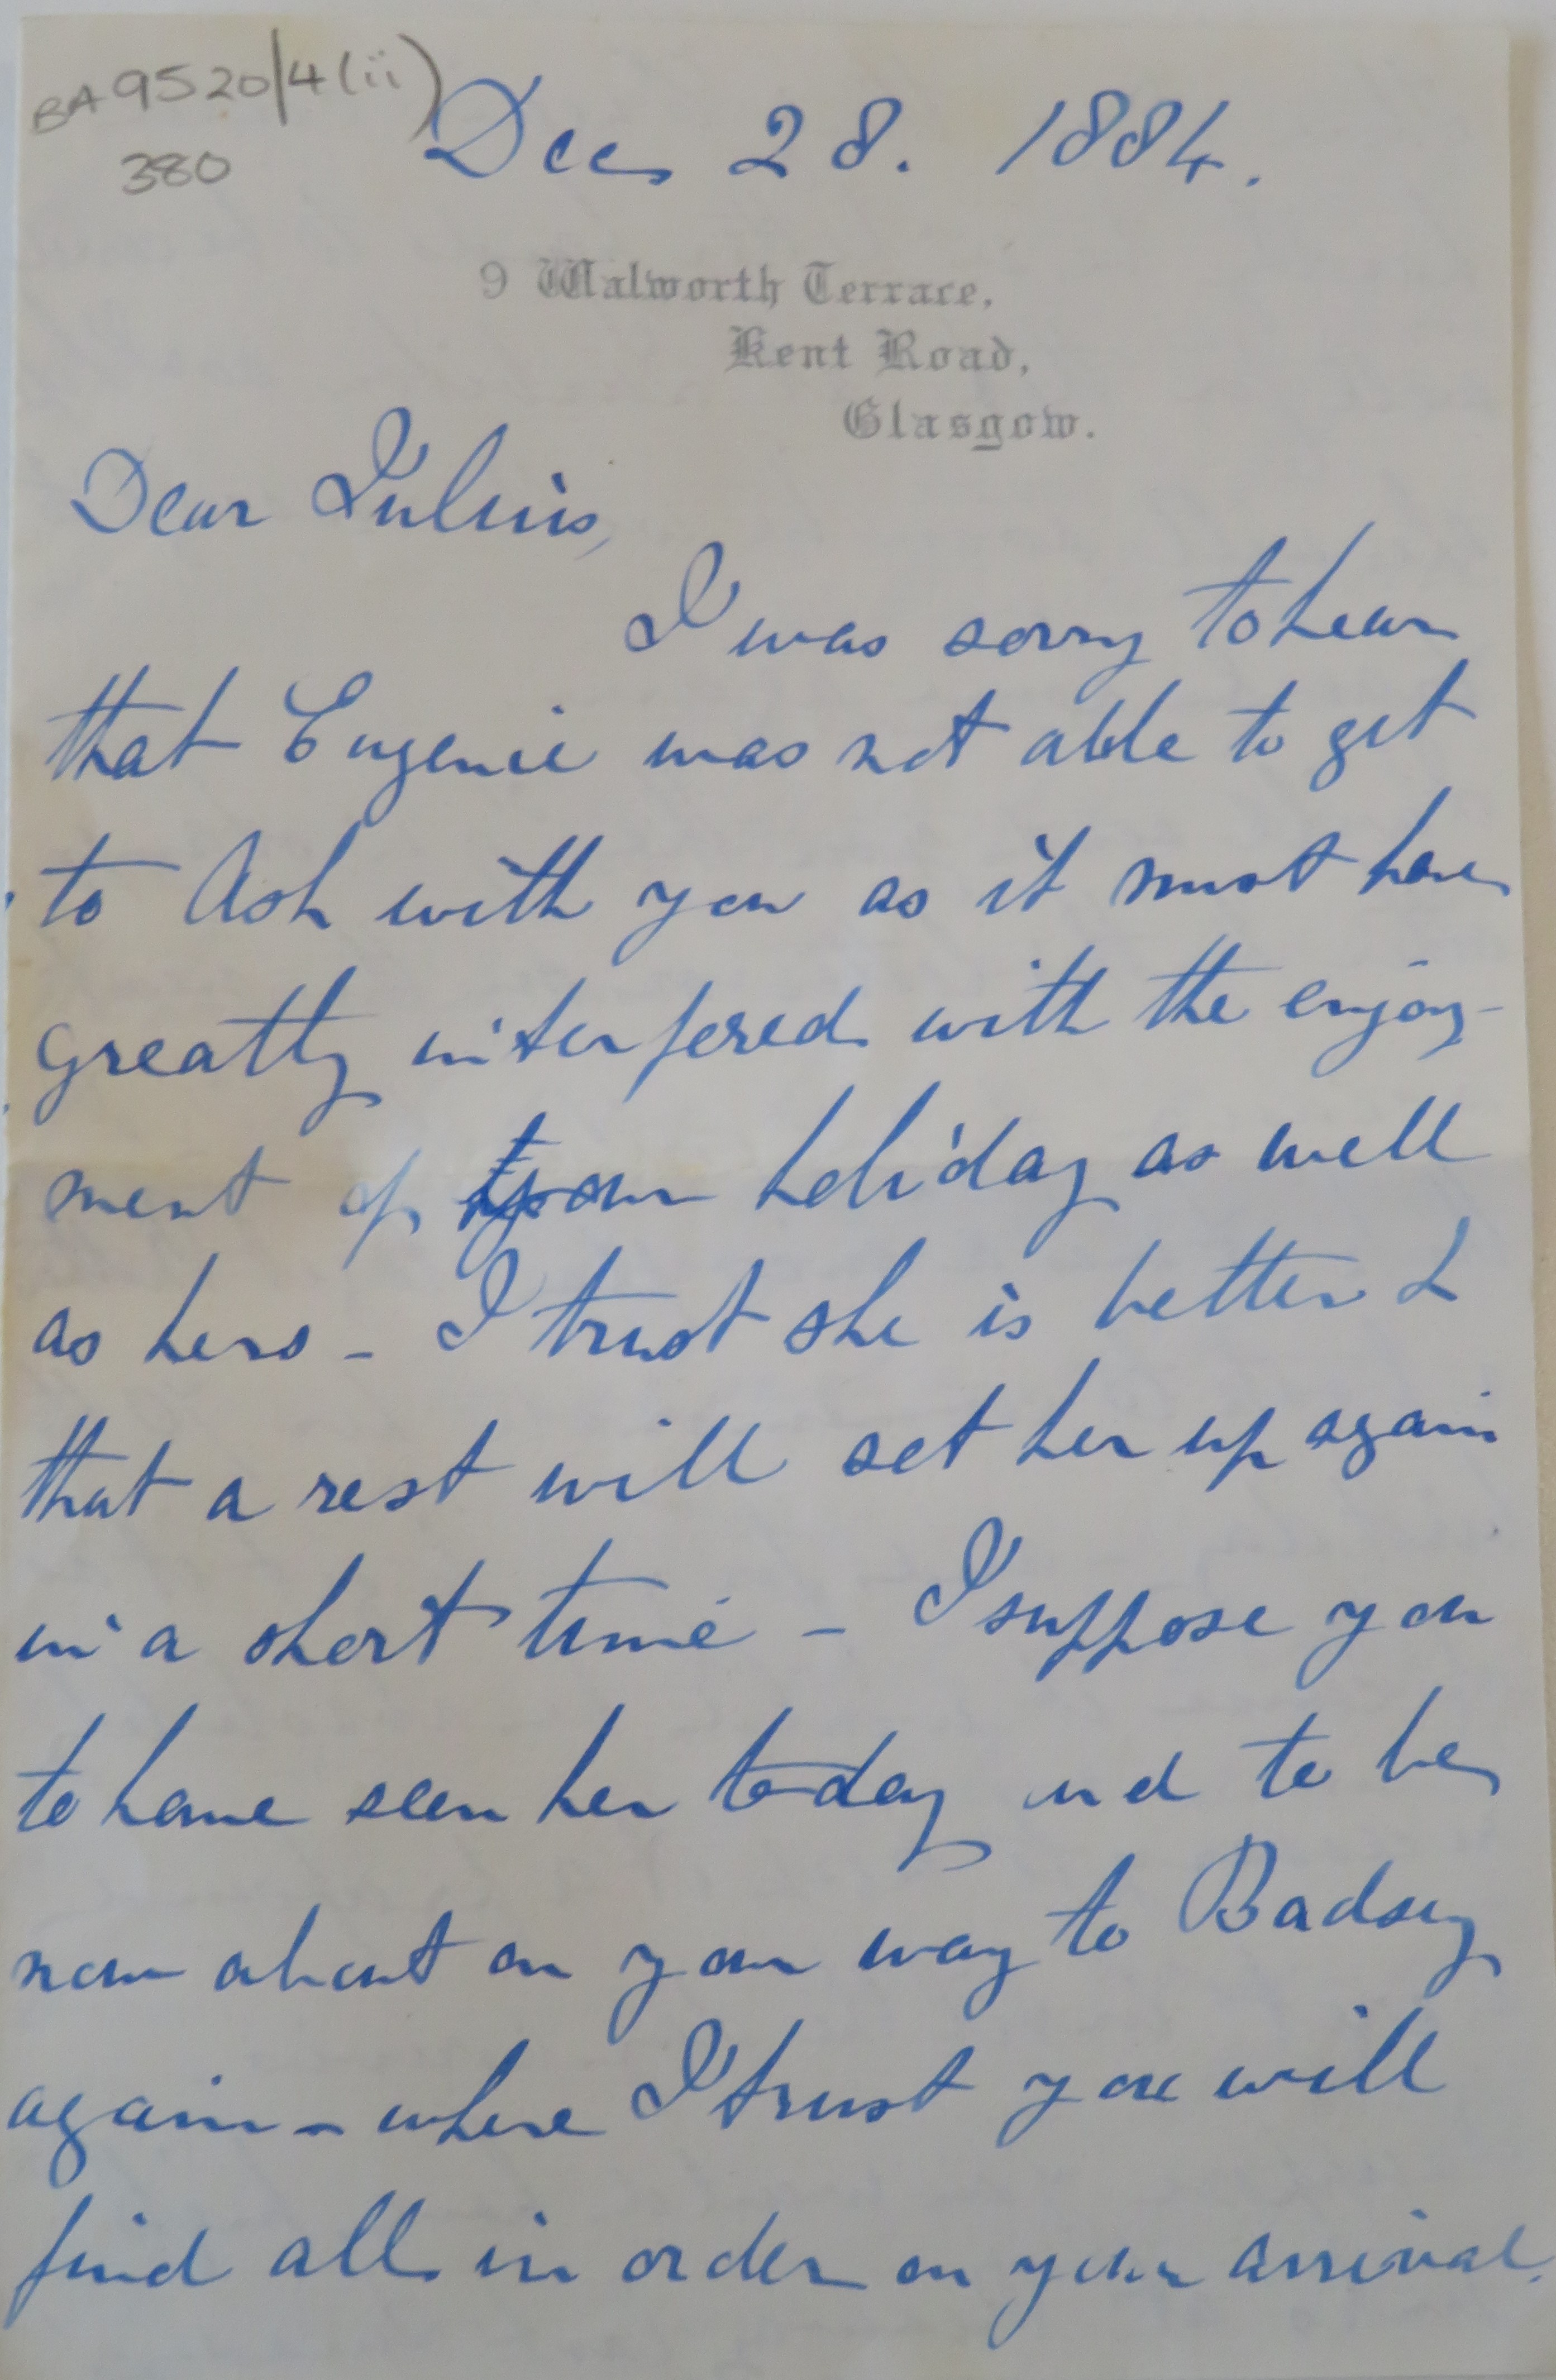 BA 9520/4(ii)
380
Dec 28. 1884.
9 Walworth Terrace,
Kent Road,
Glasgow.
Dear Julius,
I was sorry to hear
that Eugenie was not able to get
to Ash with you as it must have
greatly interfered with the enjoy-
ment of your holiday as well
as hers - I trust she is better &
that a rest will set her up again
in a short time - I suppose you
to have seen her today and to be
now about on your way to Badsey
again - where I trust you will
find all in order on your arrival.